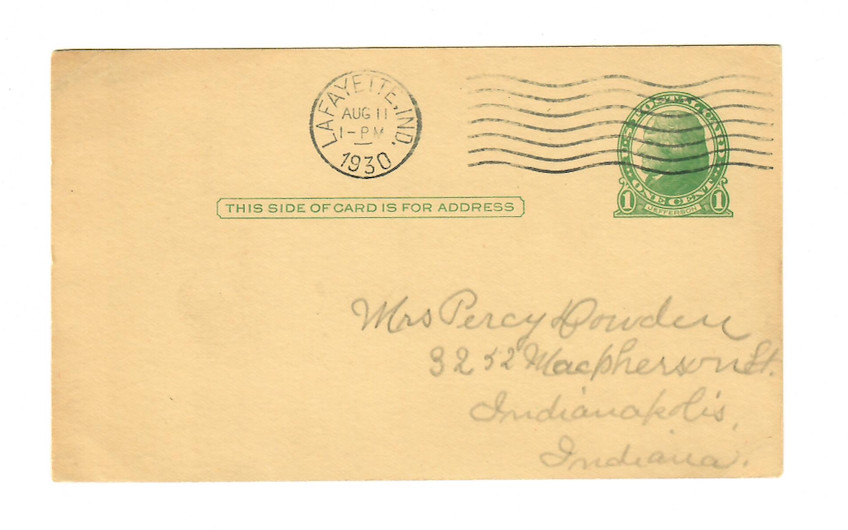 LAFAYETTE, IND.
AUG 11
1-PM
1930
U.S. POSTAL CARD
ONE CENT
1 JEFFERSON 1
THIS SIDE OF CARD IS FOR ADDRESS
Mrs Percy Dowden
3252 Macpherson St.
Indianapolis,
Indiana.